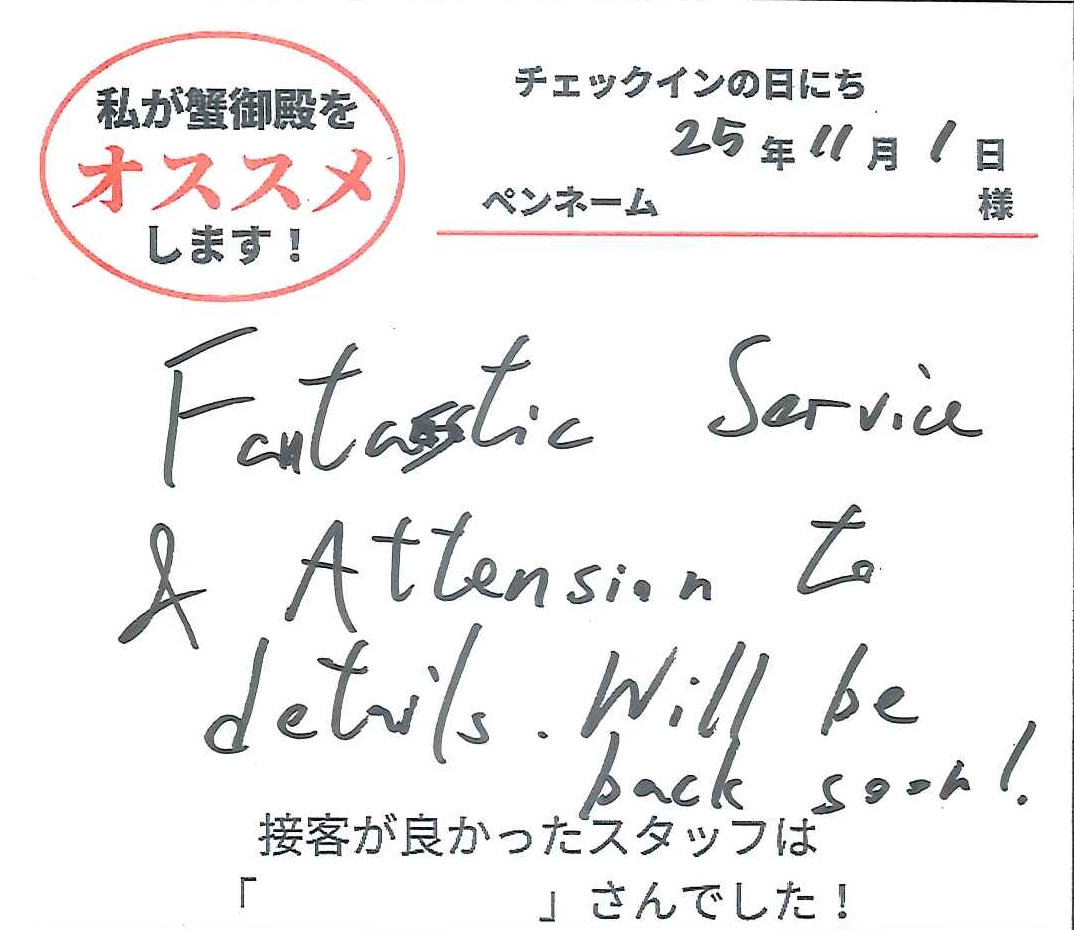 私が蟹御殿を
オススメ
します！
チェックインの日にち
25年11月1日
ペンネーム 様
Fantastic Service
& Attension to
details. Will be
back soon!
接客が良かったスタッフは
「 」さんでした！